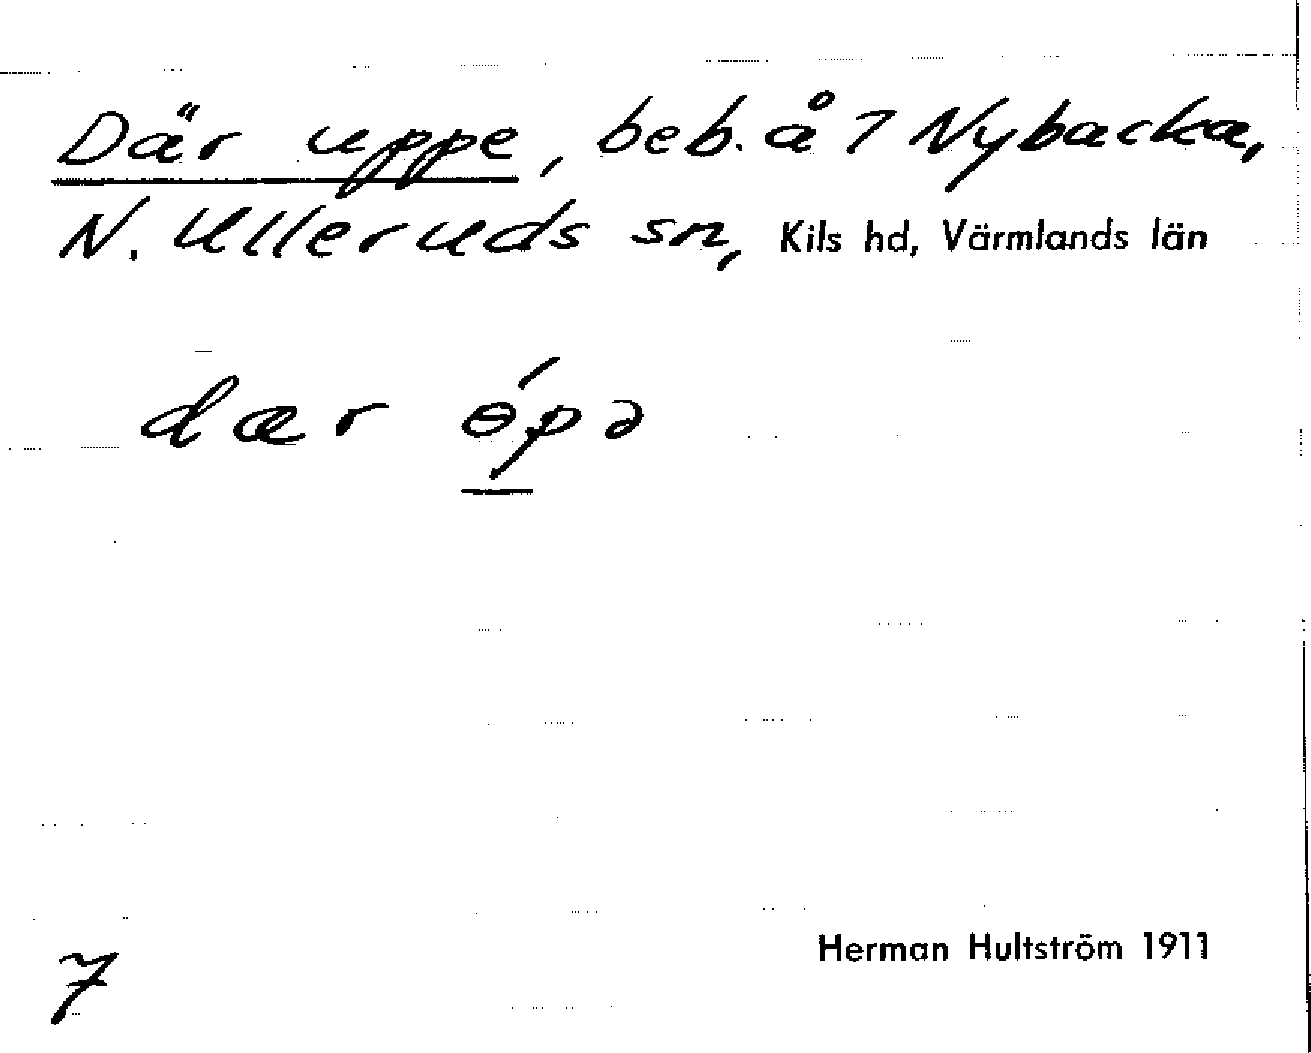 Där uppe, beb. å 7 Nybacka,
N. Ulleruds sn, Kils hd, Värmlands län
dær ɵ́pə
7
Herman Hultström 1911